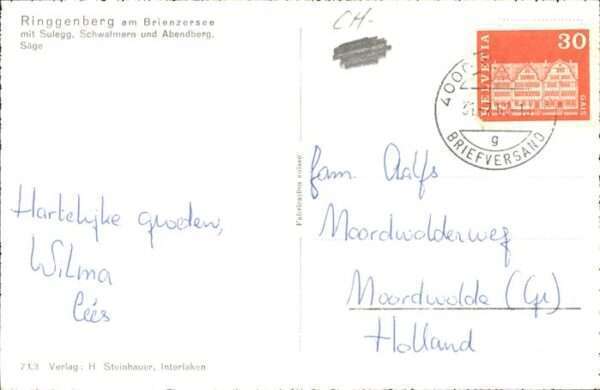 Ringgenberg am Brienzersee
mit Sulegg, Schwalmern und Abendberg,
Säge
CH-
HELVETIA
30
GAIS
4000
BRIEFVERSAND
g
Fabrication suisse
Hartelijke groeten,
Wilma
Cées
fam. Aalfs
Noordwolderweg
Noordwolde (Gr)
Holland
713 Verlag: H. Steinhauer, Interlaken